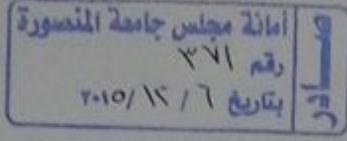 صادر
أمانة مجلس جامعة المنصورة
رقم ٣٧١
بتاريخ ٦ / ١٢ / ٢٠١٥